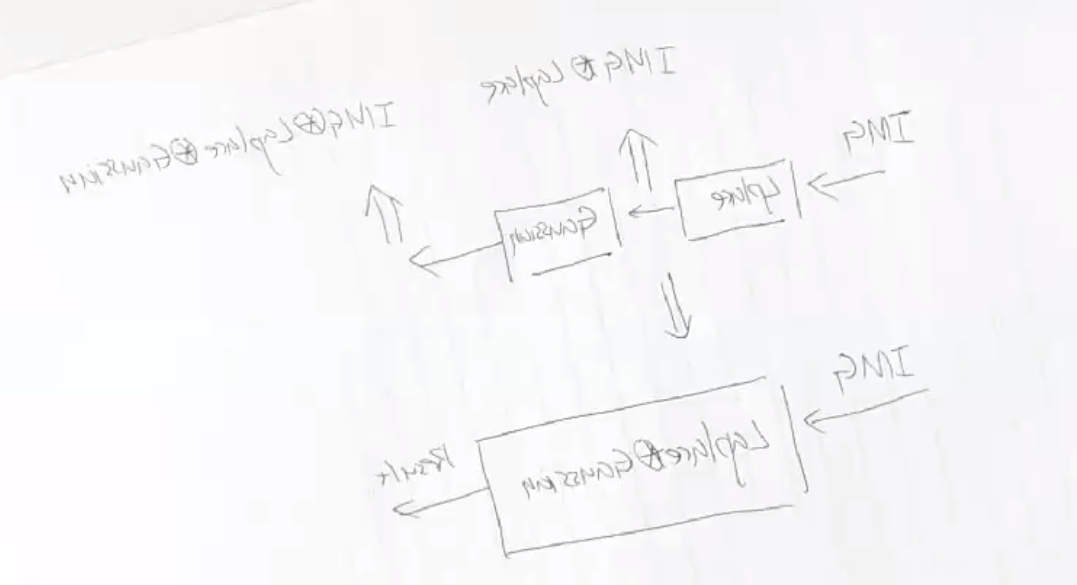 IMG ⊛ Laplace
IMG ⊛ Laplace ⊛ Gaussian
IMG
Laplace
Gaussian
IMG
Laplace ⊛ Gaussian
Result